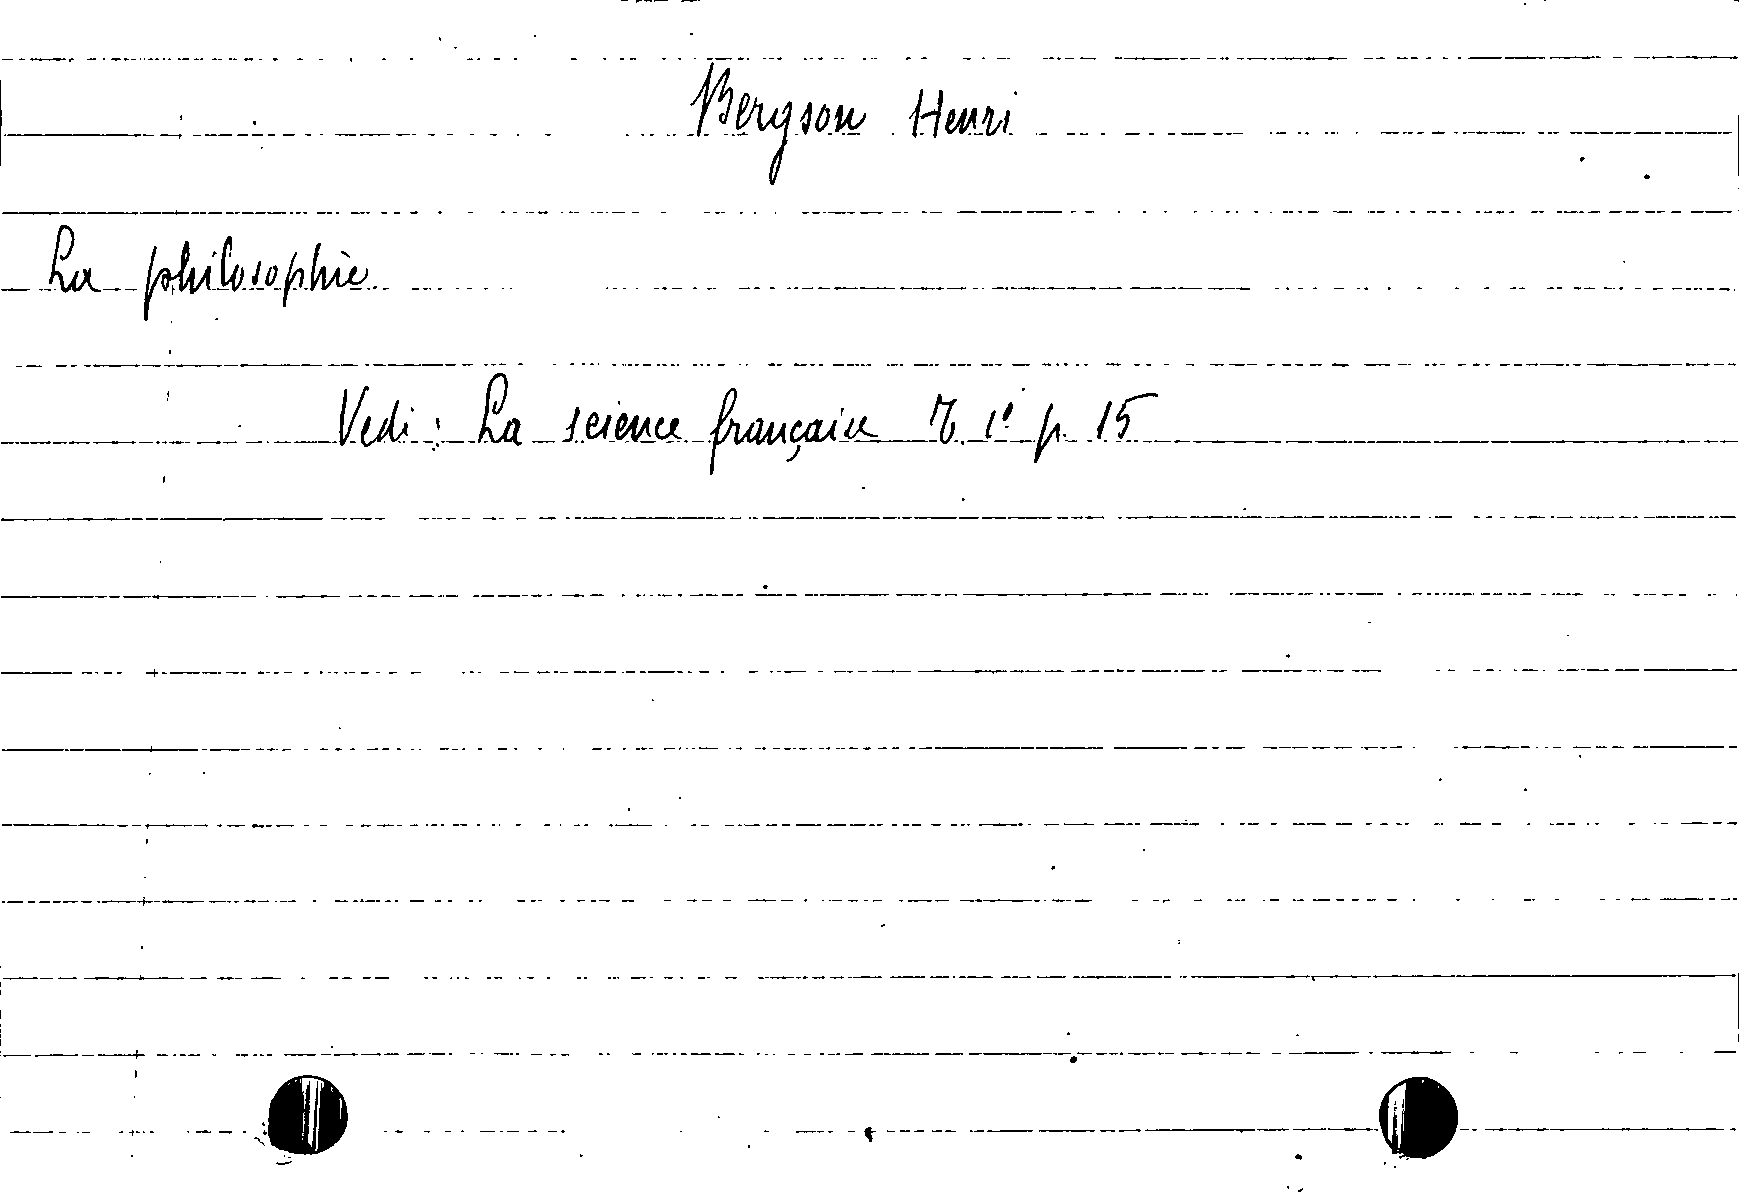 Bergson Henri
La philosophie
Vedi: La science française T. 1° p. 15